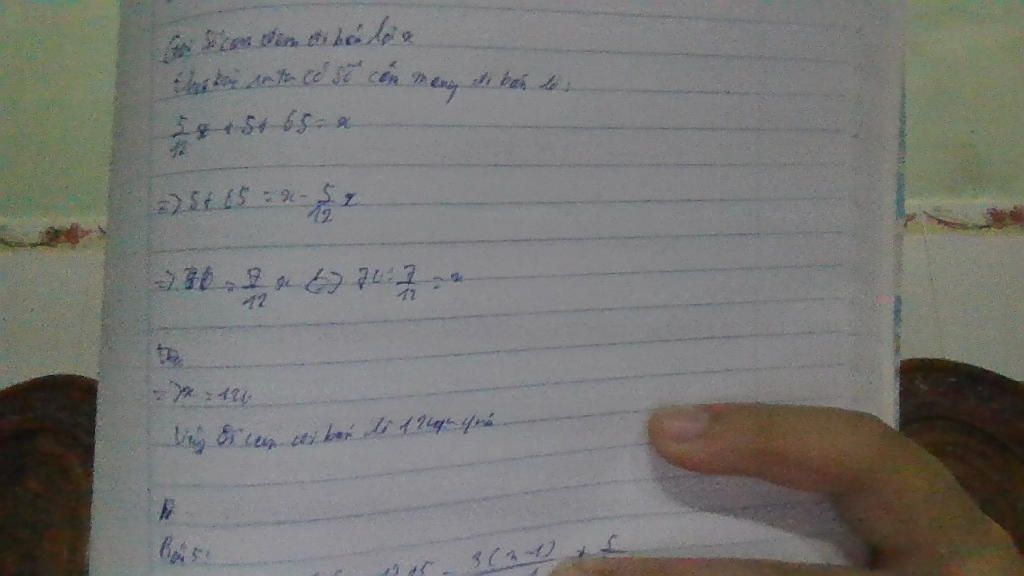 Gọi số cam đem đi bán là x
theo bài ra ta có số cam mang đi bán là:
5/12 x + 5 + 65 = x
=> 5 + 65 = x - 5/12 x
=> 70 = 7/12 x <=> 70 : 7/12 = x
=> x = 120
Vậy số cam đi bán là 120 quả
Bài 5:
3(x-1)